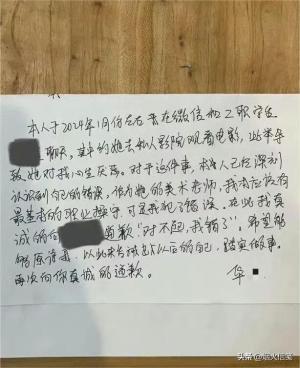 本人于2024年1月份左右去在微信和工职学生
聊天,其中约她去私人影院观看电影,此举导
致她对我心生厌恶。对于这件事,本人已经深刻
认识到自己的错误,作为她的美术老师,我本应该有
最基本的职业操守,可是我犯了错误,在此我真
诚的向 道歉“对不起,我错了”。希望能
够原谅我,以此来告诫也以后的自己,踏实做事。
再次向你真诚的道歉。
华
头条 @烟火信笺